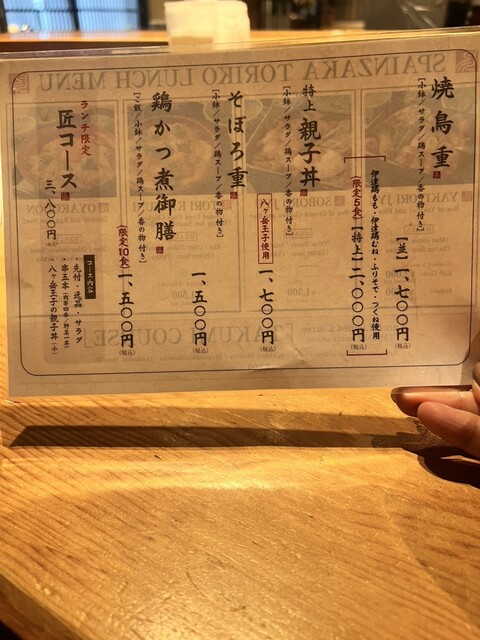 焼鳥重
[小鉢/サラダ/鶏スープ/香の物付き]
【並】一、七〇〇円
(税込)
伊達鶏もも・伊達鶏むね・ふりそで・つくね使用
(限定5食)【特上】二、〇〇〇円
(税込)
特上 親子丼
[小鉢/サラダ/鶏スープ/香の物付き]
八ヶ岳王子使用
一、七〇〇円
(税込)
そぼろ重
[小鉢/サラダ/鶏スープ/香の物付き]
一、五〇〇円
(税込)
鶏かつ煮御膳
[ご飯/小鉢/サラダ/鶏スープ/香の物付き]
(限定10食)一、五〇〇円
(税込)
ランチ限定
匠コース
三、八〇〇円
(税込)
コース内容
・先付・逸品・サラダ
・串五本
・八ヶ岳王子の親子丼(小)
SPAINZAKA TORIKO LUNCH MENU